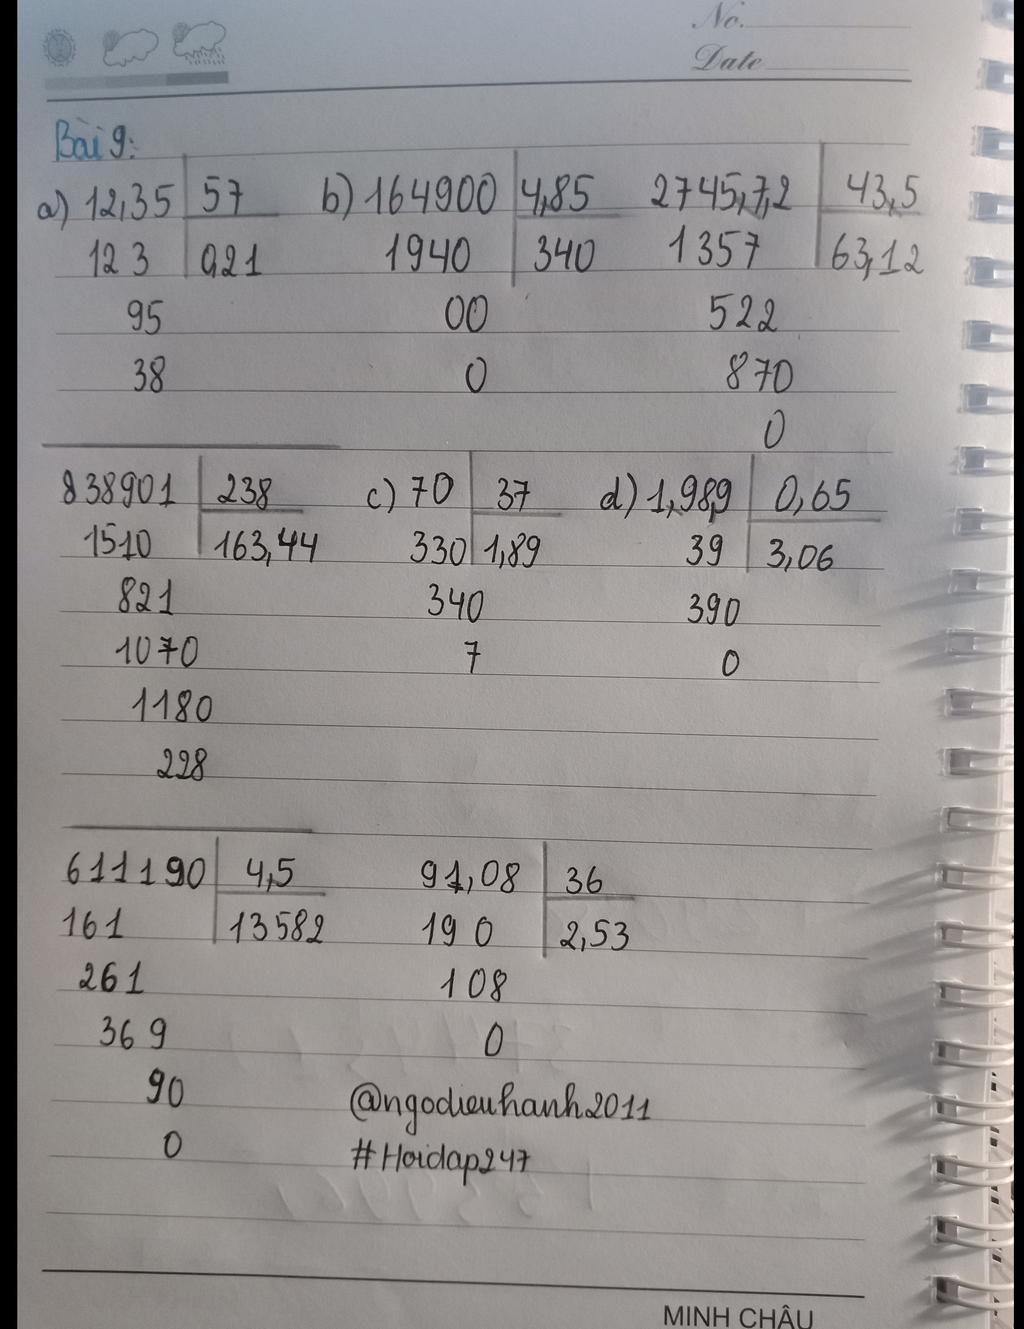 No.
Date
Bài 9:
a) 12,35 57 b) 164900 4,85 2745,7,2 43,5
123 0,21 1940 340 1357 63,12
95 00 522
38 0 870
0
838901 238 c) 70 37 d) 1,98,9 0,65
1510 163,44 330 1,89 39 3,06
821 340 390
1070 7 0
1180
228
611190 4,5 91,08 36
161 13582 190 2,53
261 108
369 0
90 @ngodieuhanh2011
0 #Hoidap247
MINH CHÂU